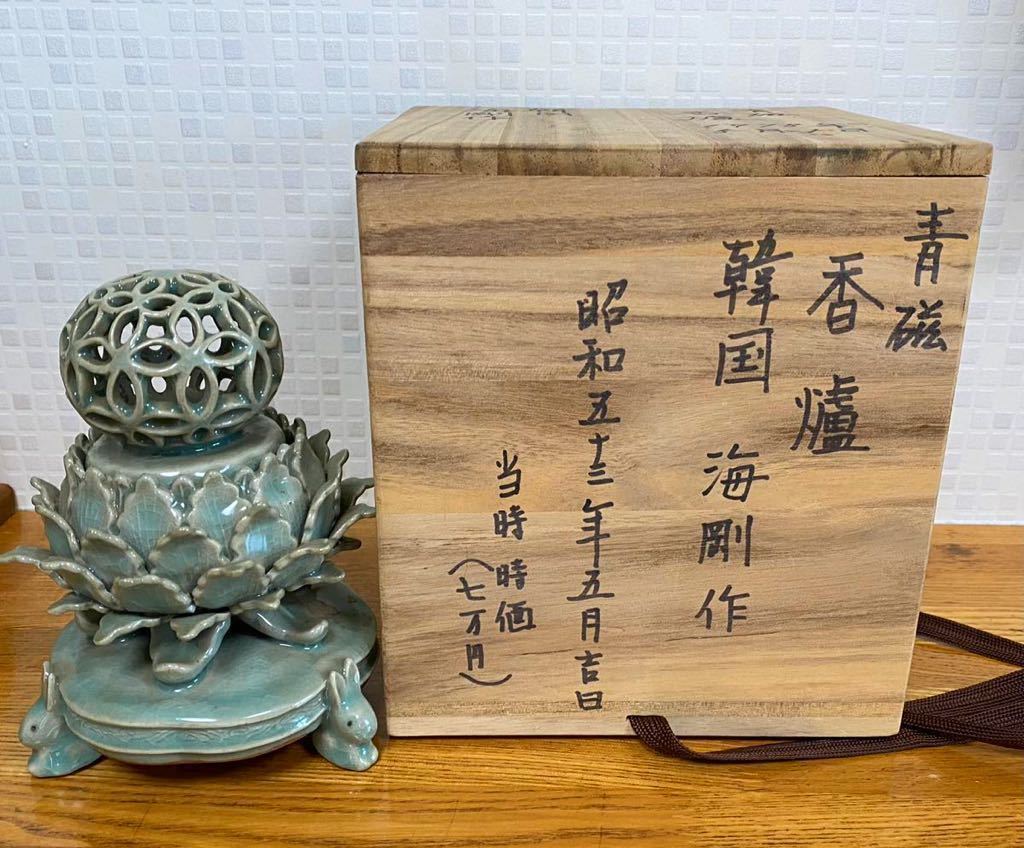 青磁
香爐
韓国 海剛作
昭和五十三年五月吉日
当時時価
(七万円)